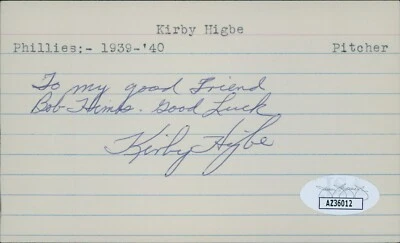 Kirby Higbe
Phillies:- 1939-'40 Pitcher
To my good Friend
Bob Good Luck
Kirby Higbe
AZ36012